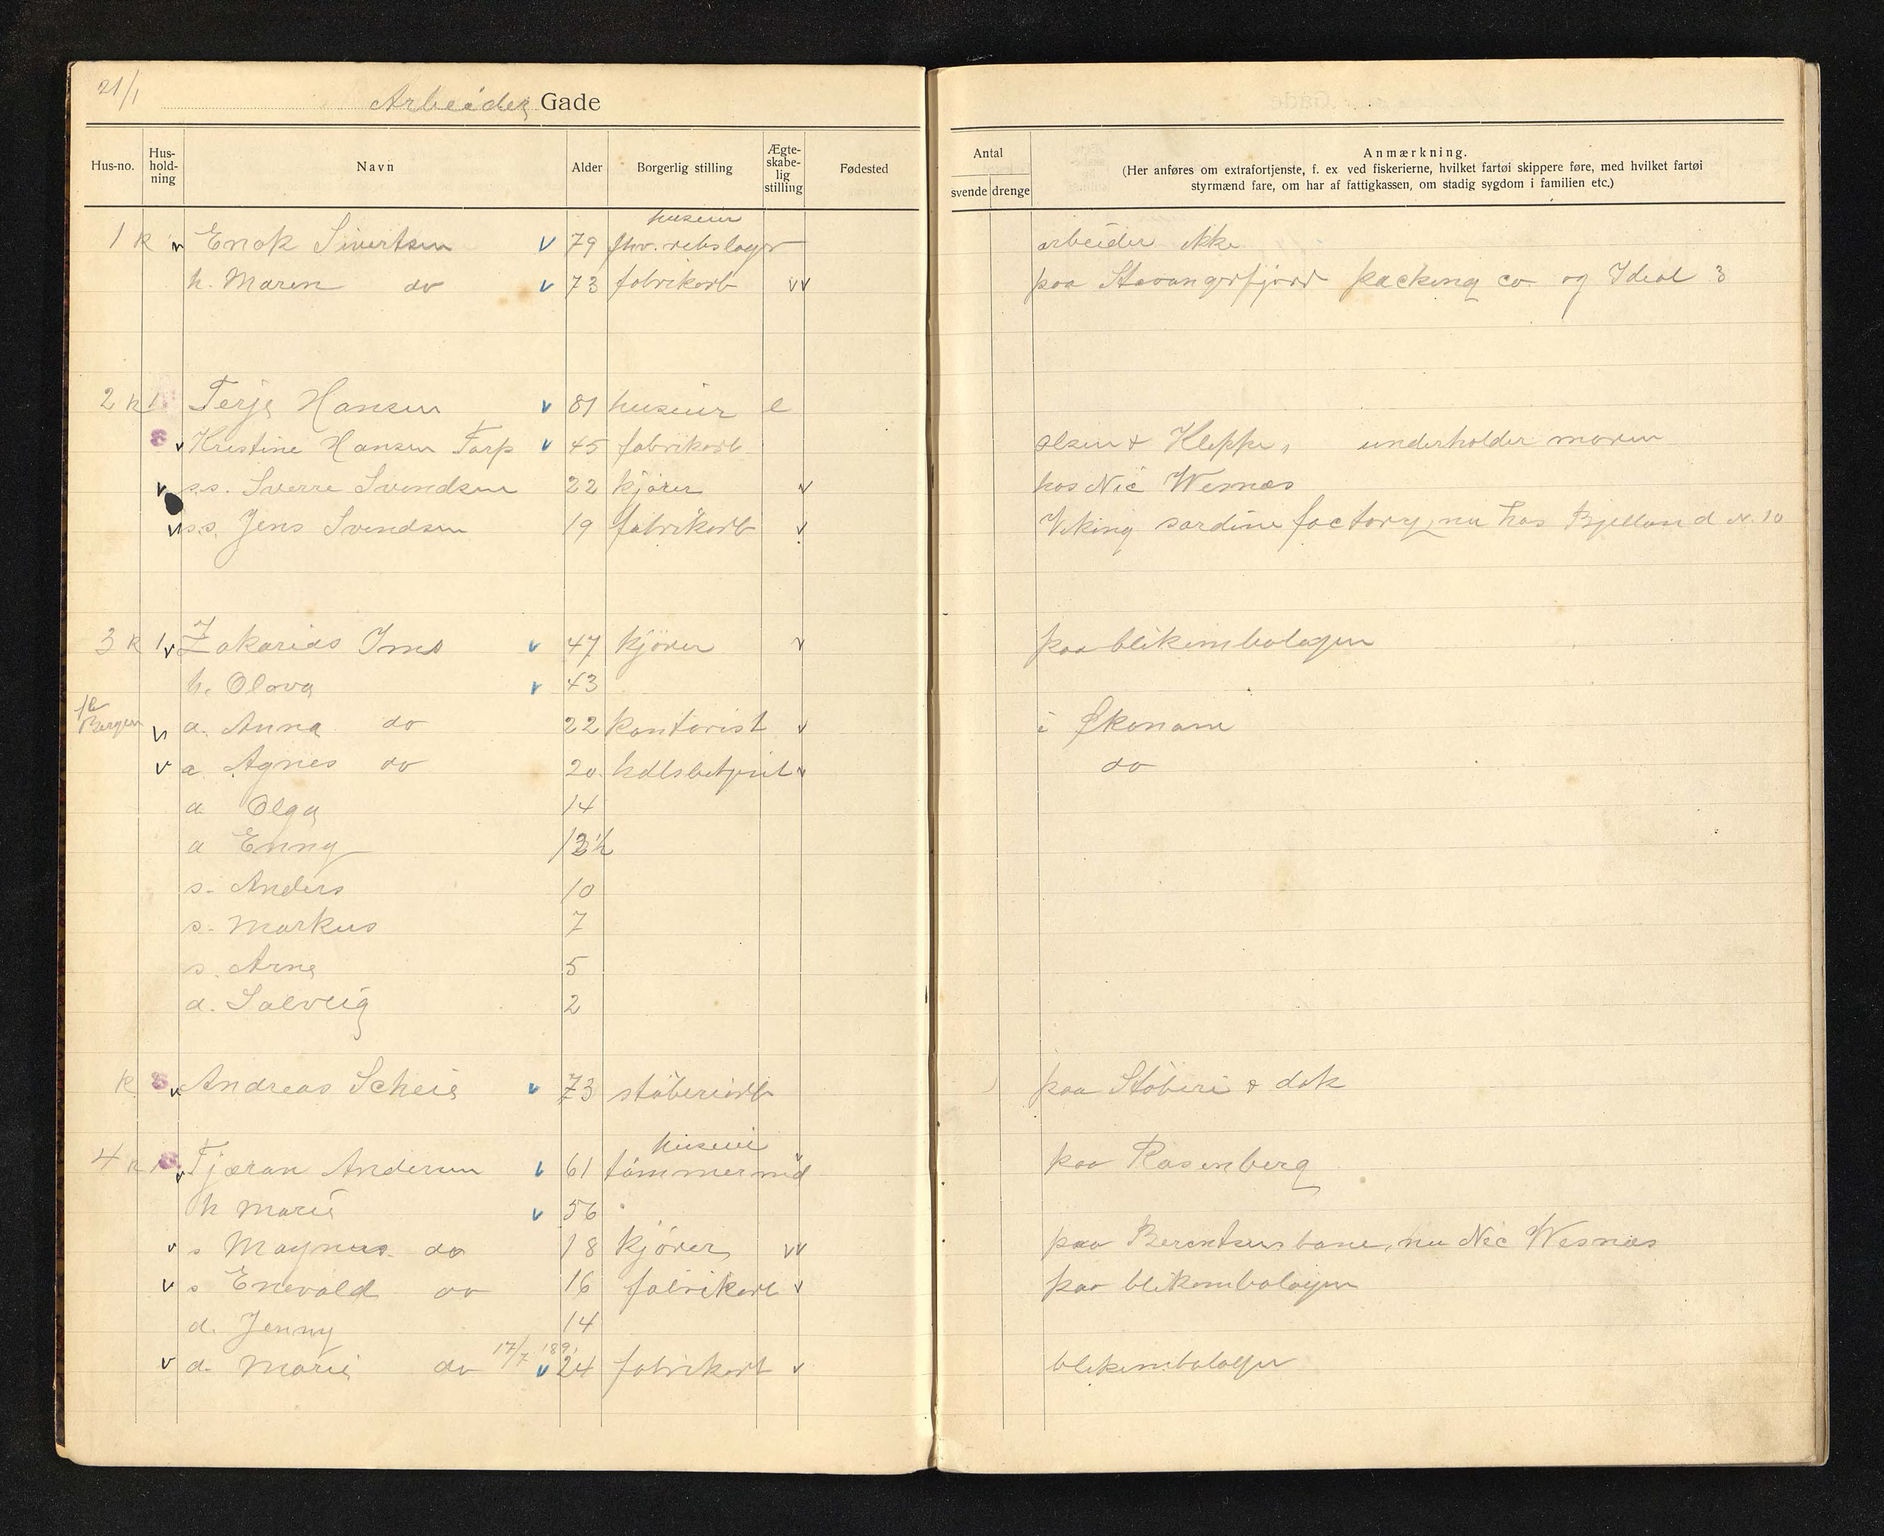 21/1
Arbeider Gade
Hus-no. Hus-hold-ning Navn Alder Borgerlig stilling Ægte-skabe-lig stilling Fødested
Antal svende drenge
Anmærkning.
(Her anføres om extrafortjenste, f. ex ved fiskerierne, hvilket fartøi skippere føre, med hvilket fartøi
styrmænd fare, om har af fattigkassen, om stadig sygdom i familien etc.)
huseier
1 k v Enok Sivertsen v 79 fhv. rebslager arbeider ikke
h. Maren do v 73 fabrikarb vv paa Stavangerfjord packing co og Ideal 3
2 k 1 Terje Hansen v 81 huseier e
S v Kristine Hansen Tarp v 45 fabrikarb Olsen & Kleppe, underholder moren
v s.s. Sverre Svendsen 22 kjører v hos Nic Wesnæs
v s.s. Jens Svendsen 19 fabrikarb v Viking sardine factory, nu hos Bjelland N. 10
3 k 1 v Zakarias Ims v 47 kjører v paa blikemballagen
h. Olava v 43
Bergen v d. Anna do 22 kontorist v i Økonom
v d Agnes do 20 hdlsbetjent v do
d Olga 14
d Enny 13 1/2
s. Anders 10
s. Markus 7
s. Arne 5
d. Solveig 2
k S v Andreas Scheie v 73 støberiarb paa Støberi & dok
huseier
4 k 1 S v Tjeran Andersen v 61 tømmermd paa Rosenberg
h Marie v 56
v s Magnus do 18 kjører vv paa Berentsens bane, nu Nic Wesnæs
v s Enevald do 16 fabrikarb v paa blikemballagen
d. Jenny 14
17/7 189
v d. Marie do v 24 fabrikarb v blikemballagen